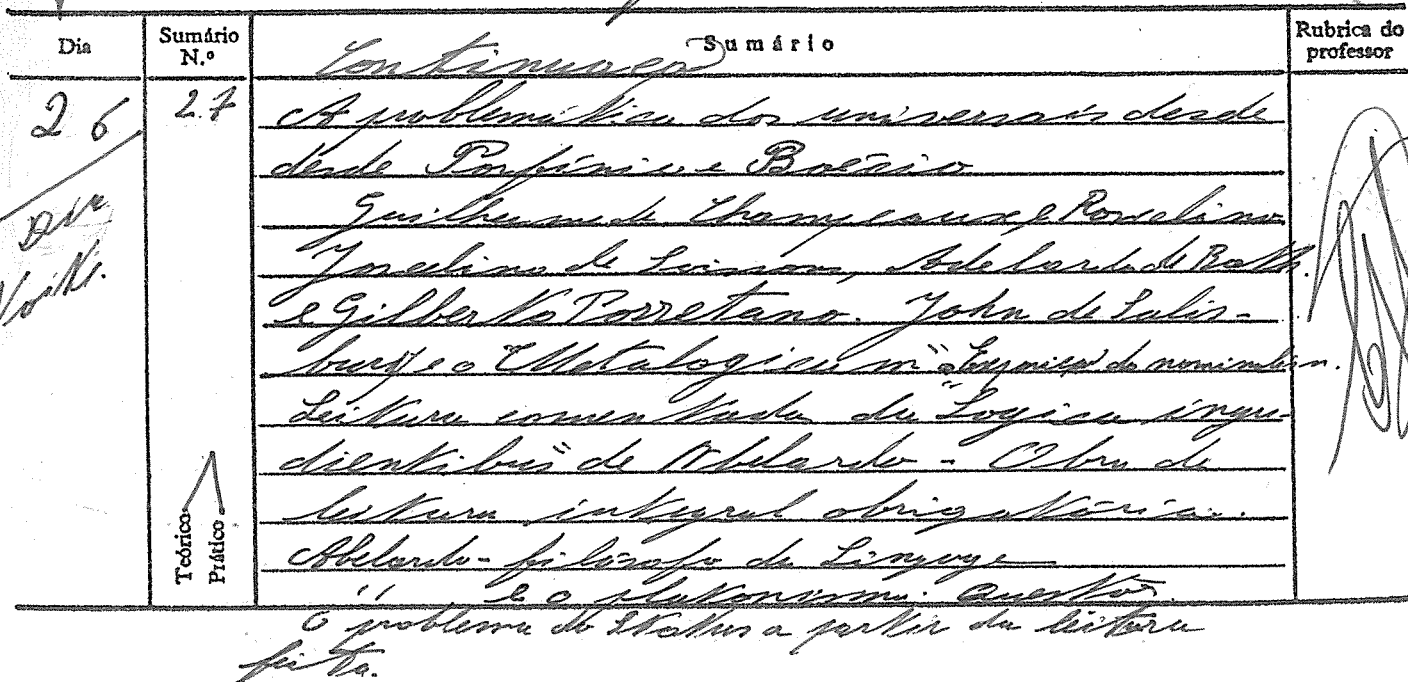 Dia Sumário N.º Sumário Rubrica do professor
Continuação
26 27 A problemática dos universais desde
desde Porfírio e Boécio
Guilherme de Champeaux e Roscelino
Joscelino de Soissons, Adelardo de Bath.
e Gilberto Porretano. John de Salis-
bury e o "Metalogicum"
Leitura comentada da "Logica ingre-
dientibus" de Abelardo - Obra de
leitura integral obrigatória.
Abelardo - filósofo da Lingoge
" e o platonismo.
O problema do Status a partir da leitura
feita.
Teórico
Prático